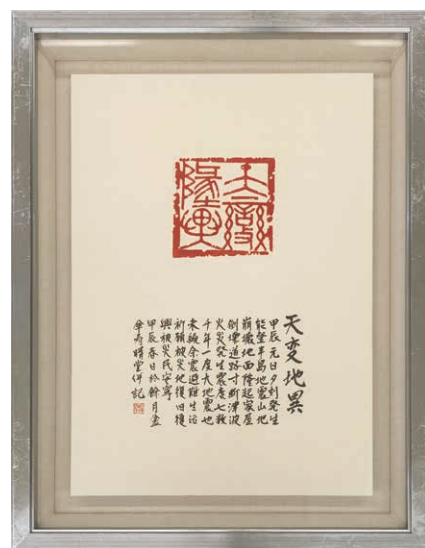 天変地異
甲辰元日夕刻発生
能登半島地震山地
崩壊地面隆起家屋
倒壊道路寸断津波
火災発生震度七
千年一度大地震也
未 余震避難生活
祈願被災地復旧復
興被災民安寧
甲辰春日於 月
傘寿晴堂併記